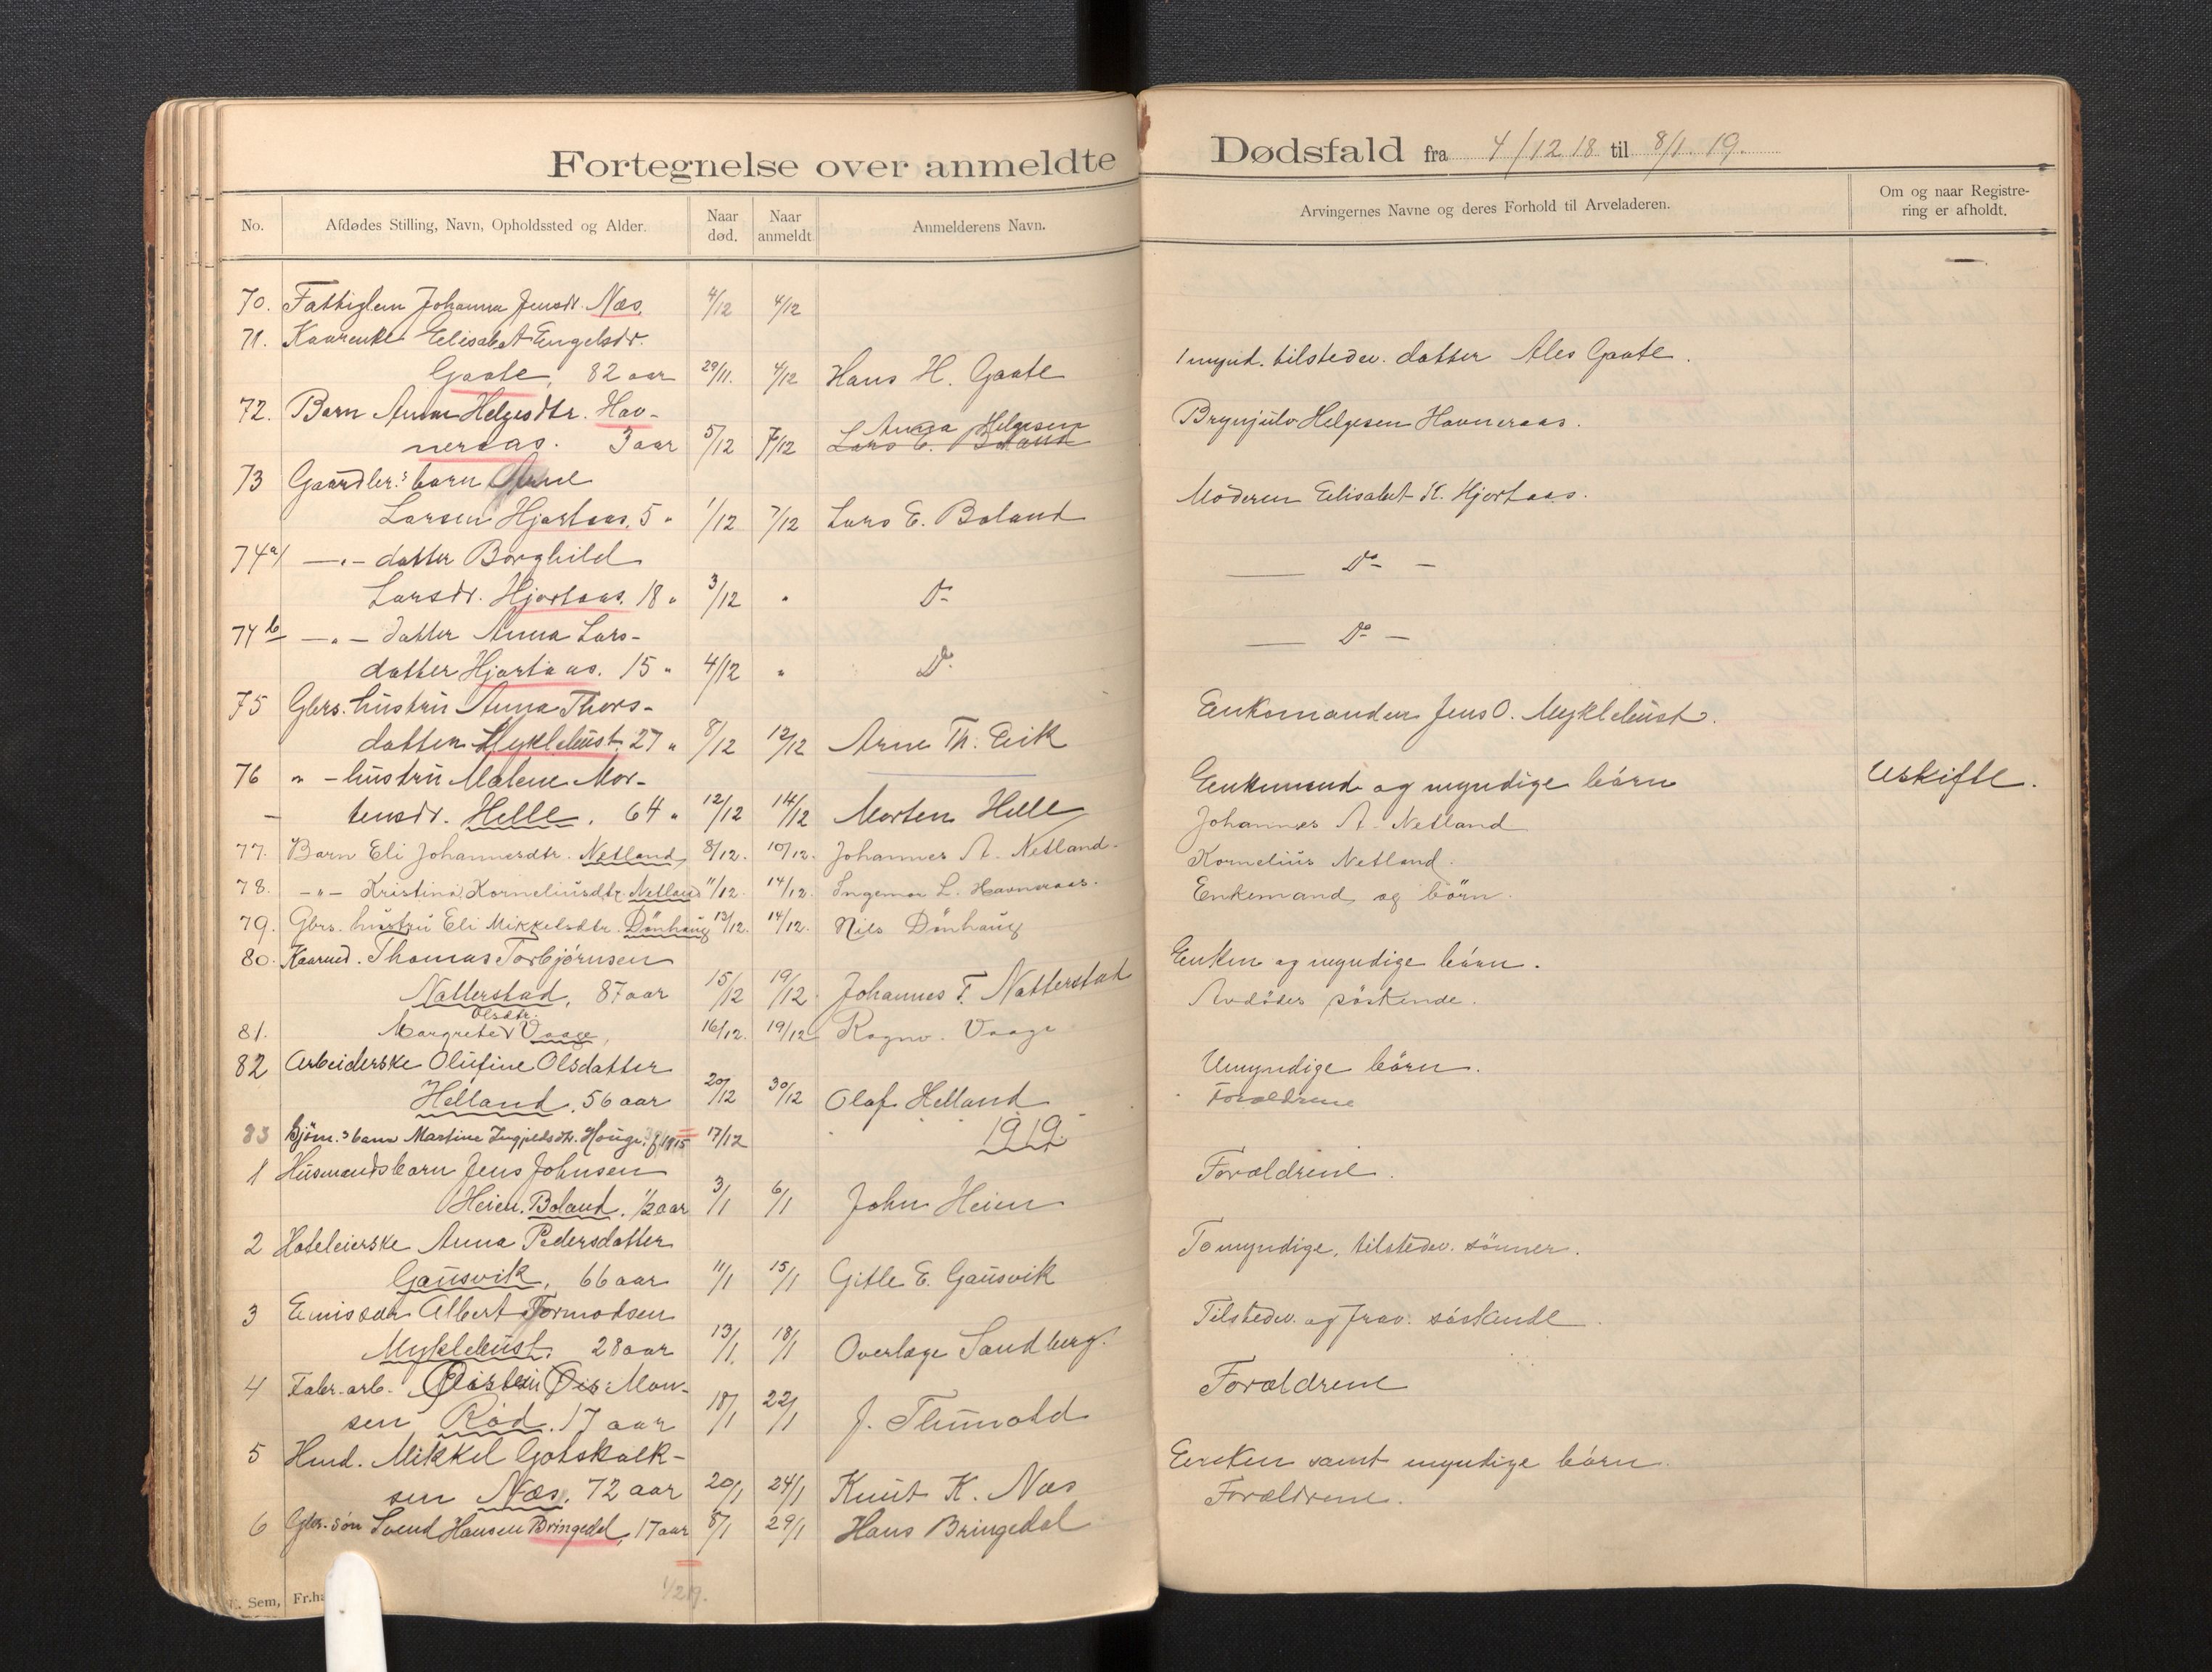 Fortegnelse over anmeldte Dødsfald fra 4/12 18 til 8/1. 19.
No. Afdødes Stilling, Navn, Opholdssted og Alder. Naar død. Naar anmeldt Anmelderens Navn. Arvingernes Navne og deres Forhold til Arveladeren. Om og naar Registrering er afholdt.
—
70. Fattiglem Johanna Jensdr. Næs. 4/12 4/12
71. Kaarenke Elisabet Engelsdr.
Gaate, 82 aar 29/11. 4/12 Hans H. Gaate 1 mynd. tilstedev. datter Ales Gaate.
72. Barn Anna Helgesdtr. Hav-
Anna Helgesen
neraas. 3 aar 5/12 7/12 Lars E. Boland Brynjulv Helgesen Havneraas.
73 Gaardbr.s barn Arne
Larsen Hjartaas, 5 " 1/12 7/12 Lars E. Boland Moderen Elisabet K. Hjortaas.
74a/ —"— datter Borghild
Larsdr. Hjortaas, 18 " 3/12 " Do — Do —
74b —"— datter Anna Lars-
datter Hjartaas. 15 " 4/12 " Do — Do —
75 Gbrs. hustru Anna Thors-
datter Myklebust, 27 " 8/12 12/12 Arne Th. Eik Enkemanden Jens O. Myklebust.
76 " - hustru Malene Mor-
tensdr. Helle, 64 " 12/12 14/12 Morten Helle Enkemand og myndige børn Uskifte.
77. Barn Eli Johannesdtr. Netland, 8/12. 10/12. Johannes A. Netland. Johannes A. Netland
78. —"— Kristina Korneliusdtr. Netland 11/12. 14/12. Ingemar L. Havneraas. Kornelius Netland.
79. Gbrs. hustru Eli Mikkelsdtr. Dønhaug 13/12. 14/12. Nils Dønhaug Enkemand og børn.
80. Kaarmd. Thomas Torbjørnsen
Natterstad, 87 aar 15/12 19/12. Johannes T. Natterstad Enken og myndige børn.
Olsdtr.
81. Margrete Vaage, 16/12. 19/12 Ragnv. Vaage Avdødes søskende.
82 Arbeiderske Olufine Olsdatter
Helland, 56 aar 20/12 30/12 Olaf Helland Umyndige børn.
83 Bjørn.s barn Martine Ingjeldsdtr. Houge, 17/12 Forældrene
1919.
1 Husmandsbarn Jens Johnsen
Heien, Boland, 1/2 aar 3/1 6/1 John Heien Forældrene.
2 Hoteleierske Anna Pedersdatter
Gausvik, 66 aar 11/1 15/1 Gitle E. Gausvik To myndige, tilstedev. sønner.
3 Emissær Albert Tormodsen
Myklebust, 28 aar 13/1. 18/1 Overlæge Sandberg. Tilstedev. og frav. søskende.
4 Fabr. arb. Øistein Mon-
sen Rød. 17 aar 18/1 22/1 J. Thunold Forældrene
5 Hmd. Mikkel Gotskalk-
sen Næs, 72 aar 20/1 24/1 Knut K. Næs Enken samt myndige børn.
6 Gbr. søn Svend Hansen Bringedal, 17 aar 8/1 29/1 Hans Bringedal Forældrene.
1/2 19.
Sem, Fr.ha